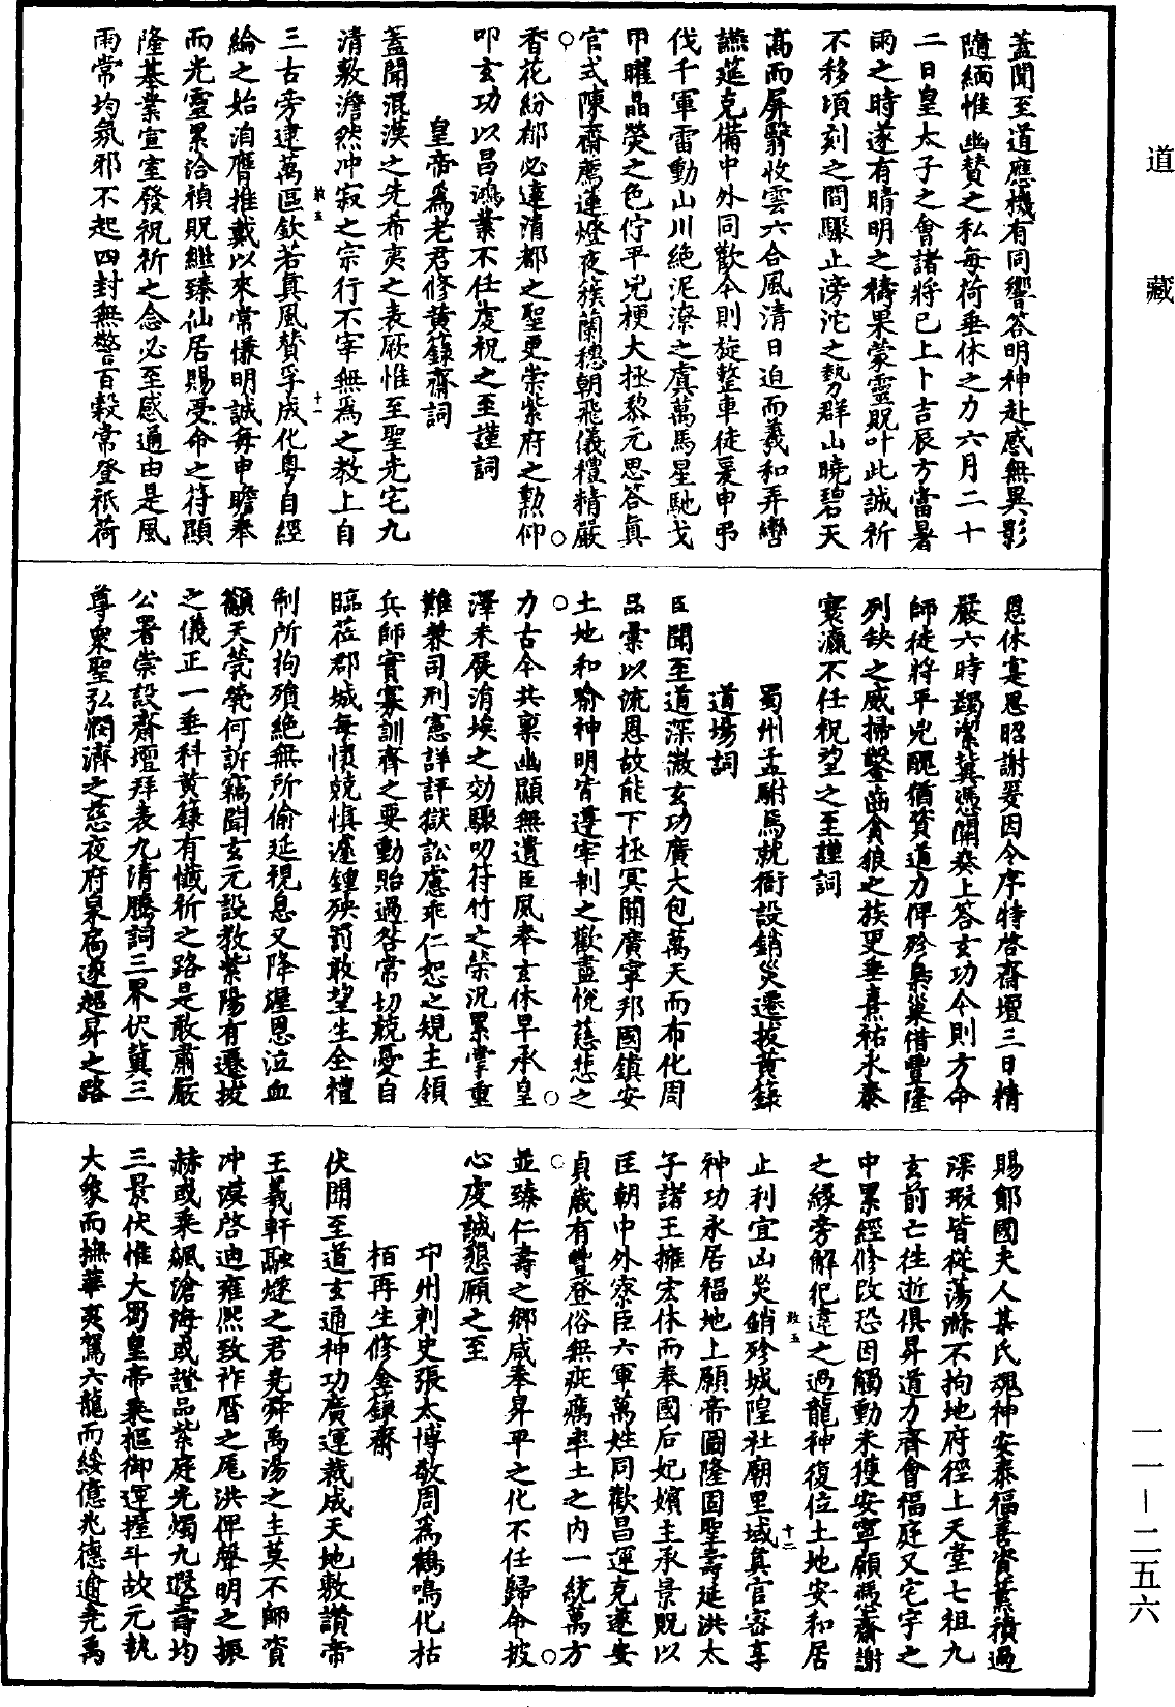 道藏
蓋聞至道應機有同響答明神赴感無異影
隨緬惟幽贊之私每荷垂休之力六月二十
二日皇太子之會諸將已上卜吉辰方當暑
雨之時遂有晴明之禱果蒙靈貺叶此誠祈
不移頃刻之間驟止滂沱之勢群山曉碧天
高而屏翳收雲六合風清日迫而羲和弄轡
讌筵克備中外同歡今則旋整車徒爰申弔
伐千軍雷動山川絶泥潦之虞萬馬星馳戈
甲曜晶熒之色佇平兇梗大拯黎元思答眞
官式陳齋薦蓮燈夜簇蘭穗朝飛儀禮精嚴
香花紛郁必達清都之聖更崇紫府之勲仰
叩玄功以昌鴻業不任虔祝之至謹詞
皇帝爲老君修黄籙齋詞
蓋聞混漠之先希夷之表厥惟至聖光宅九
清敷澹然冲寂之宗行不宰無爲之教上自
三古旁建萬區欽若真風贊孚成化粤自經
綸之始洎膺推戴以來常慊明誠每申瞻奉
而光靈累洽禎貺繼臻仙居賜受命之符顯
隆基業宣室發祝祈之念必至感通由是風
雨常均氛邪不起四封無警百穀常登祇荷
恩休寔思昭謝爰因令序特啓齋壇三日精
嚴六時蠲潔冀憑關奏上答玄功今則方命
師徒將平兇醜猶資道力俾殄梟巢借豐隆
列缺之威掃鑿齒貪狼之族更垂熹祐永泰
寰瀛不任祝望之至謹詞
蜀州孟駙馬就衙設銷災遷拔黄籙
道場詞
臣聞至道深微玄功廣大包萬天而布化周
品彙以流恩故能下拯冥關廣寧邦國鎮安
土地和喻神明皆遵宰制之歡盡悅慈悲之
力古今共稟幽顯無遺臣夙奉玄休早承皇
澤未展涓埃之効驟叨符竹之榮況累掌重
難兼司刑憲詳評獄訟慮乖仁恕之規主領
兵師實寡訓齊之要動貽過咎常切兢憂自
臨莅郡城每懷兢慎遽鍾殃罰敢望生全禮
制所拘殞絶無所偷延視息又降渥恩泣血
顧天煢煢何訴竊聞玄元設教紫陽有遷拔
之儀正一垂科黄籙有懺祈之路是敢肅嚴
公署崇設齋壇拜表九清騰詞三界伏冀三
尊衆聖弘憫濟之慈夜府泉扃遂超昇之路
賜鄎國夫人某氏魂神安泰福善資薰積過
深瑕皆從蕩滌不拘地府徑上天堂七祖九
玄前亡往逝俱昇道力齊會福庭又宅宇之
中累經修改恐因觸動未獲安寧願憑齋謝
之緣旁解犯違之過龍神復位土地安和居
止利宜凶災銷殄城隍社廟里域真官密享
神功永居福地上願帝圖隆固聖壽延洪太
子諸王擁宏休而奉國后妃嬪主承景貺以
匡朝中外寮臣六軍萬姓同歡昌運克遂安
貞歲有豐登俗無疵癘率土之內一統萬方
並臻仁壽之鄉咸奉昇平之化不任歸命披
心虔誠懇願之至
邛州刺史張太博敬周爲鶴鳴化枯
栢再生修金籙齋
伏聞至道玄通神功廣運裁成天地敷讚帝
王羲軒融燧之君堯舜禹湯之主莫不師資
冲漠啓迪雍熙致祚曆之厖洪俾聲明之振
赫或乘飆滄海或證品紫庭光燭九遐壽均
三景伏惟大蜀皇帝乘樞御運握斗故元執
大象而撫華夷駕六龍而綏億兆德逾堯禹
一一—二五六